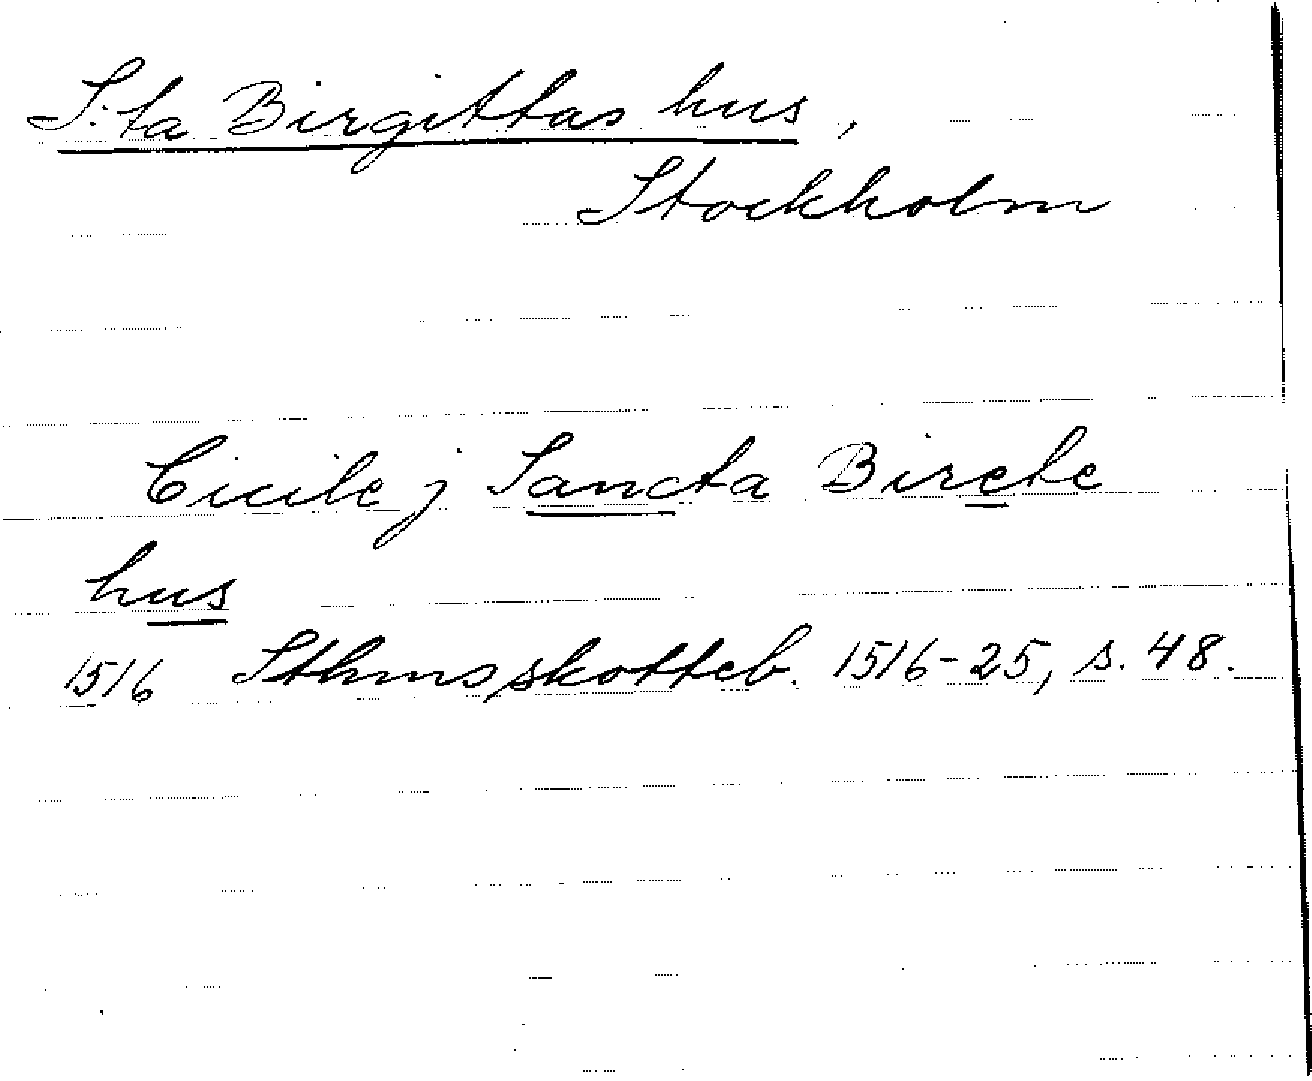 S:ta Birgittas hus,
Stockholm
Cicile j Sancta Bircte
hus
1516 Sthmsskotteb. 1516-25, s. 48.